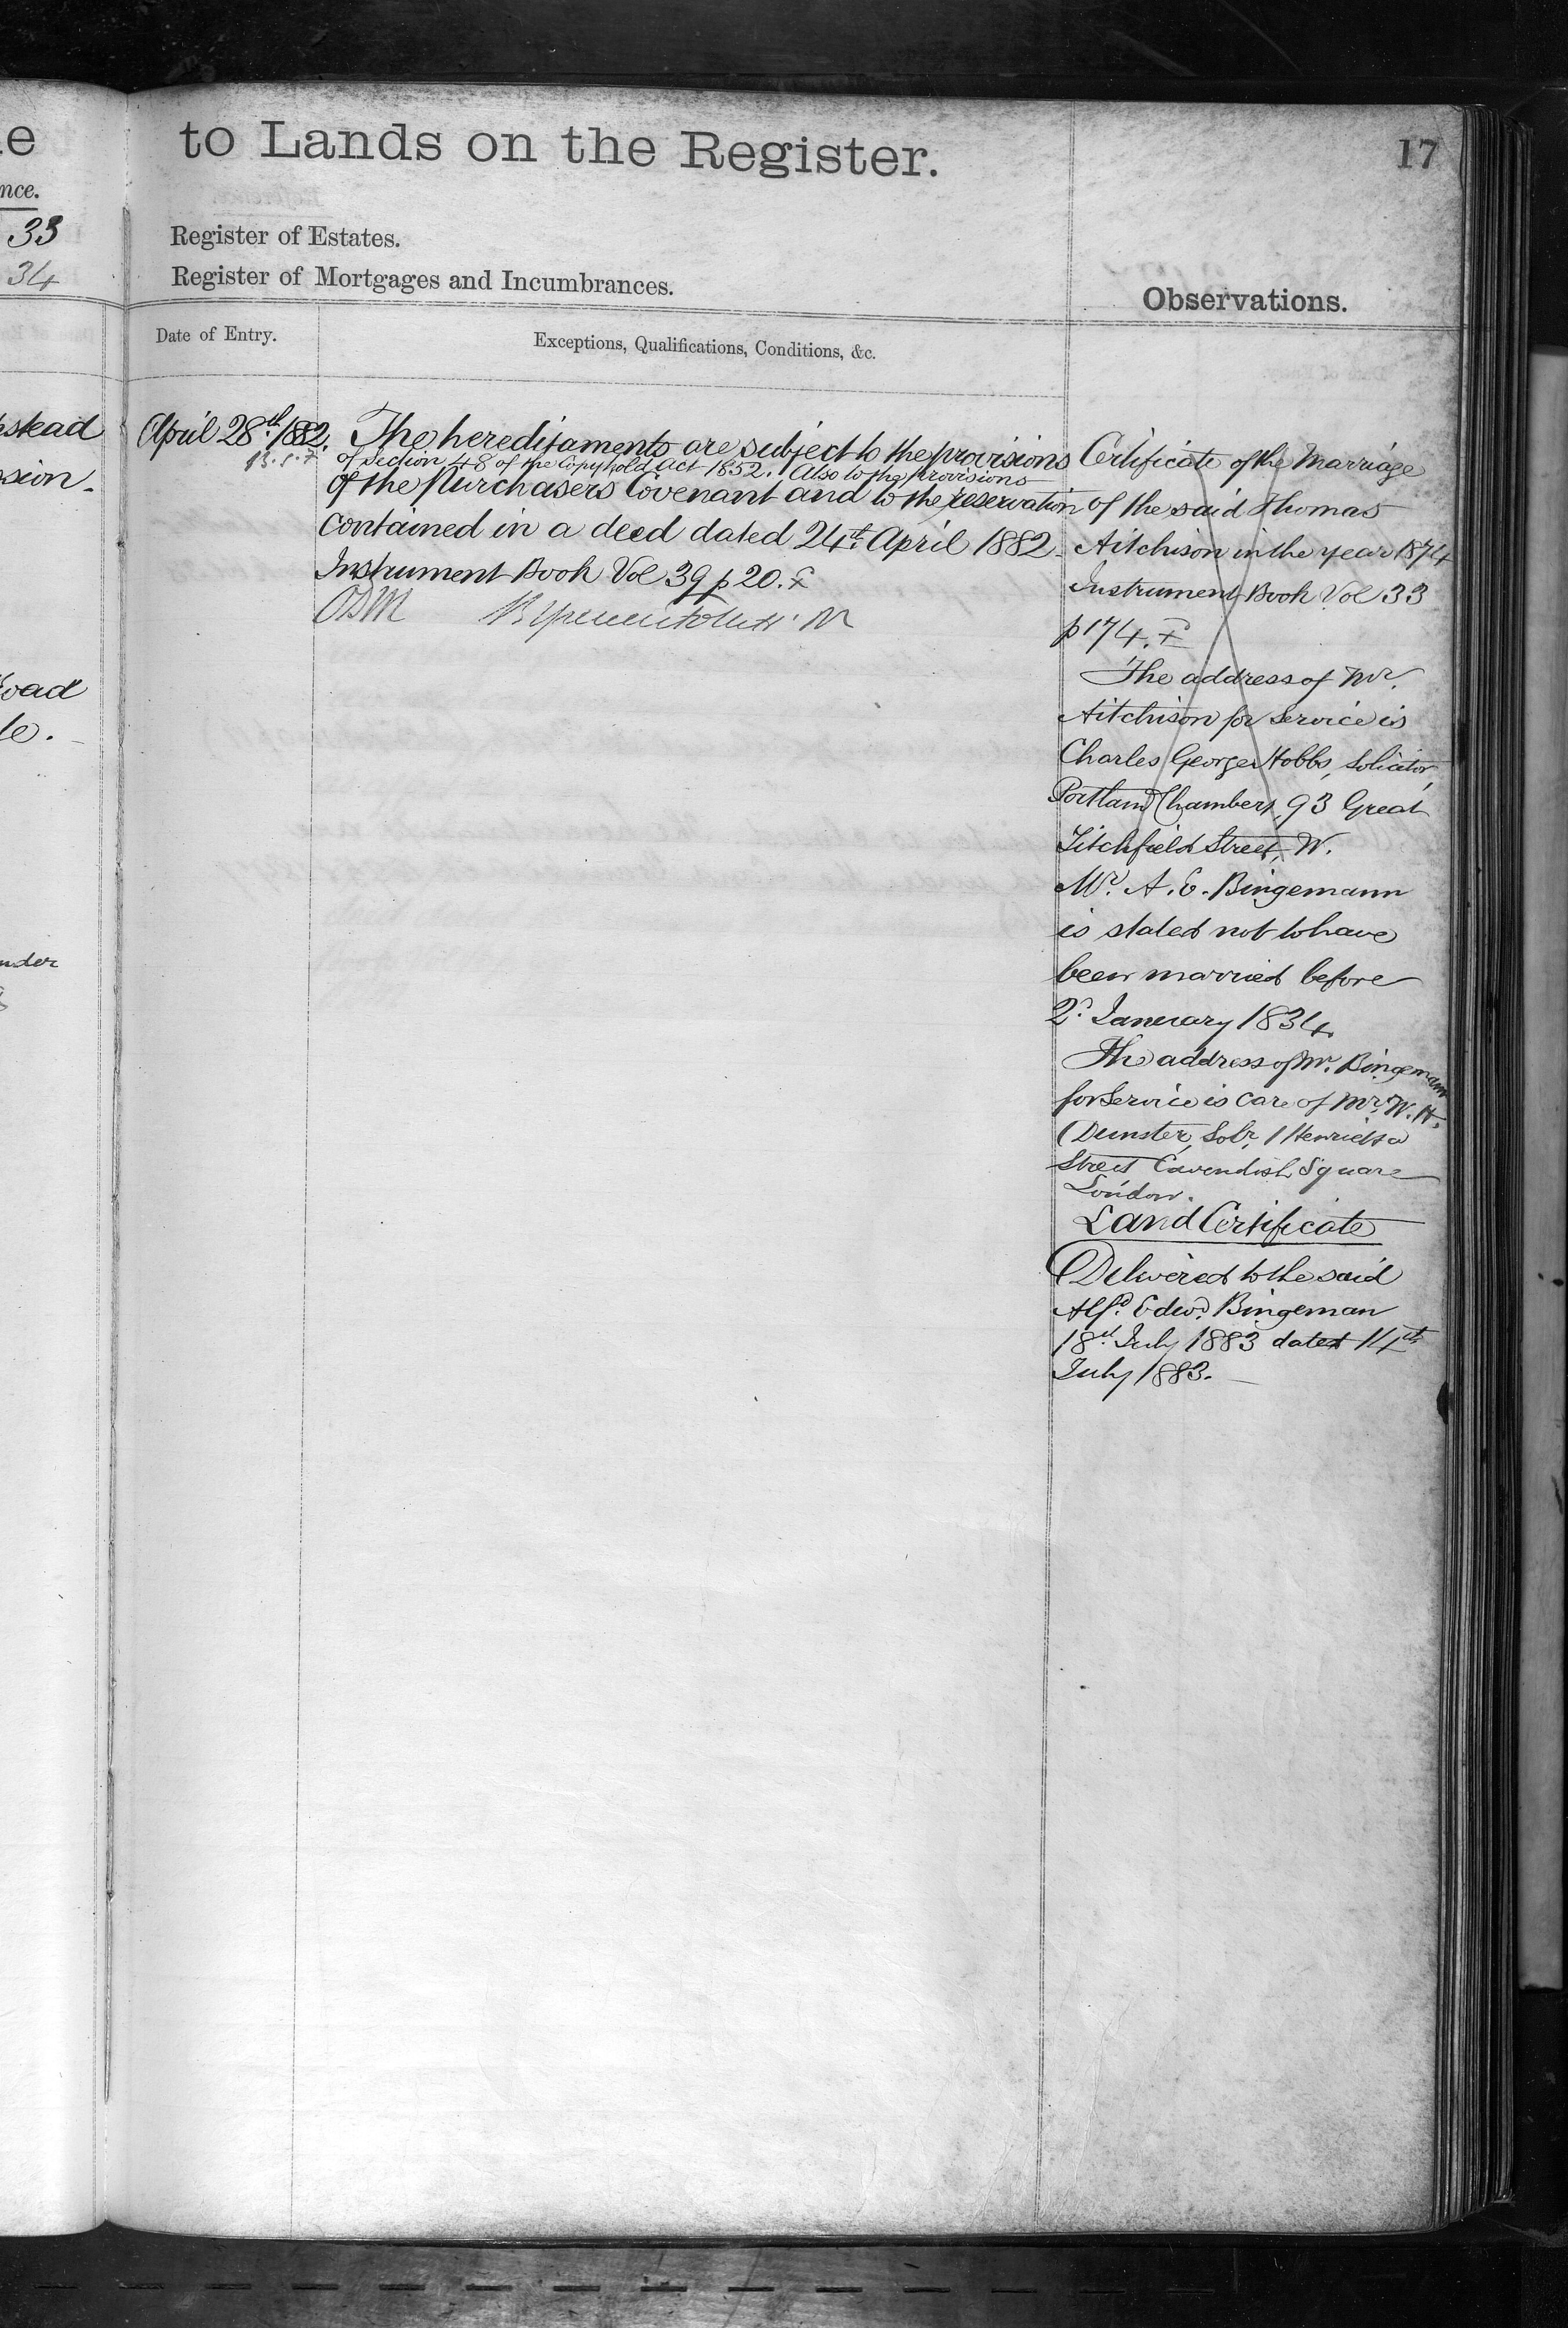 e
nce.
33
34
stead
sion.
oad
le.
nder
to Lands on the Register.
17
Register of Estates.
Register of Mortgages and Incumbrances.
Observations.
Date of Entry.
Exceptions, Qualifications, Conditions, &c.
April 28th 1882.
The hereditaments are subject to the provisions
of Section 48 of the Copyhold Act 1852. Also to the provisions
of the Purchasers Covenant and to the reservation
contained in a deed dated 24th April 1882
Instrument Book Vol 39 p 20.
ODM
Certificate of the Marriage
of the said Thomas
Aitchison in the year 1874
Instrument Book Vol 33
p 174.
The address of Mr.
Aitchison for Service is
Charles George Hobbs, Solicitor,
Portland Chambers, 93 Great
Titchfield Street, W.
Mr. A. E. Bingemann
is stated not to have
been married before
2d January 1834.
The address of Mr. Bingemann
for Service is care of Mr. W. H.
Dunster, Solr, 1 Henrietta
Street Cavendish Square
London.
Land Certificate
Delivered to the said
Alfd. Edwd. Bingeman
18th July 1883 dated 14th
July 1883.